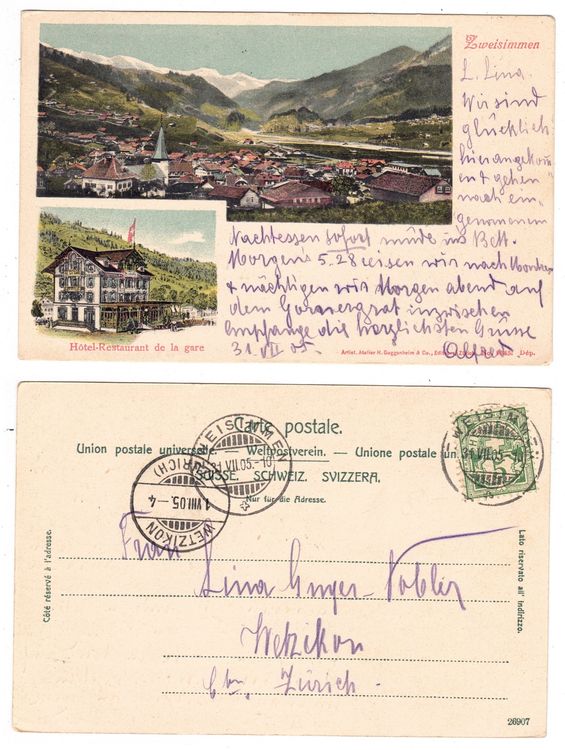 Zweisimmen
L. Lina.
Wir sind
glücklich
hier angekom
en & gehen
nach ein-
genommenem
Nachtessen sofort müde in's Bett.
Morgens 5.28 reisen wir nach
& nächtigen wir Morgen abend auf
dem Gornergrat inzwischen
empfange die herzlichsten Grüsse
31. VII 05. Alfred
Hôtel-Restaurant de la gare
Artist. Atelier H. Guggenheim & Co., Zürich Dép.
Carte postale.
Union postale universelle. — Weltpostverein. — Unione postale un
SUISSE. SCHWEIZ. SVIZZERA.
Nur für die Adresse.
ZWEISIMMEN
31 VII 05.-10
ZWEISIMMEN
31 VII 05.-10
WETZIKON
(ZÜRICH)
1 VIII 05.-4
Côté réservé à l'adresse.
Lato riservato all' indirizzo.
Frau
Lina
Wetzikon
Ctn. Zürich
26907